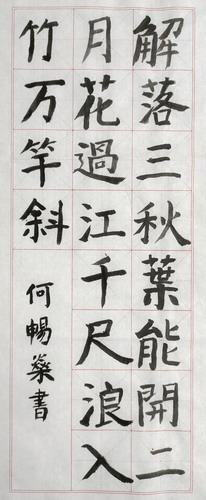 解落三秋葉能開二
月花過江千尺浪入
竹万竿斜
何暢燊書